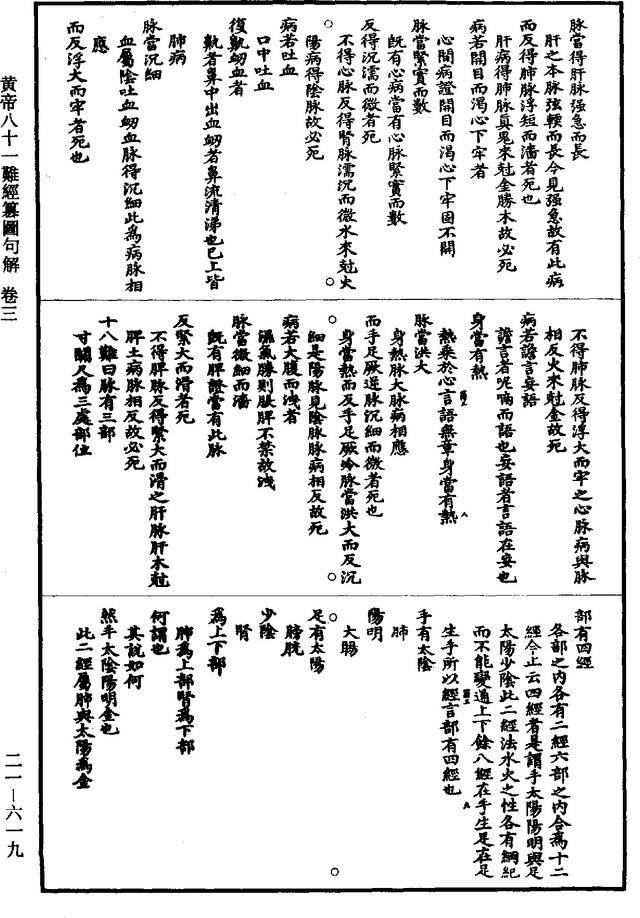 脉當得肝脉强急而長
肝之本脉弦軟而長今見强急故有此病
而反得肺脉浮短而濇者死也
肝病得肺脉真鬼來尅金勝木故必死
病若開目而渴心下牢者
心間病證開目而渴心下牢固不開
脉當緊實而數
旣有心病當有心脉緊實而數
反得沉濡而微者死
不得心脉反得腎脉濡沉而微水來尅火
陽病得陰脉故必死
病若吐血
口中吐血
復鼽衂血者
鼽者鼻中出血衂者鼻流清涕也已上皆
肺病
脉當沉細
血屬陰吐血衂血脉得沉細此爲病脉相
應
而反浮大而牢者死也
不得肺脉反得浮大而牢之心脉病與脉
相反火來尅金故死
病若譫言妄語
譫言者呢喃而語也妄語者言語在妄也
身當有熱
熱乘於心言語無章身當有熱
脉當洪大
身熱脉大脉病相應
而手足厥逆脉沉細而微者死也
身當熱而反手足厥冷脉當洪大而反沉
細是陽脉見陰脉脉病相反故死
病若大腹而洩者
濕氣勝則脹脾不禁故洩
脉當微細而濇
旣有脾證當有此脉
反緊大而滑者死
不得脾脉反得緊大而滑之肝脉肝木尅
脾土病脉相反故必死
十八難曰脉有三部
寸關尺爲三處部位
部有四經
各部之內各有二經六部之內合爲十二
經今止云四經者是謂手太陽陽明與足
太陽少陰此二經法水火之性各有綱紀
而不能變通上下餘八經在手生足在足
生手所以經言部有四經也
手有太陰
肺
陽明
大腸
足有太陽
膀胱
少陰
腎
爲上下部
肺爲上部腎爲下部
何謂也
其說如何
然手太陰陽明金也
此二經屬肺與太陽爲金
黄帝八十一難經纂圖句解 卷三
二一—六一九